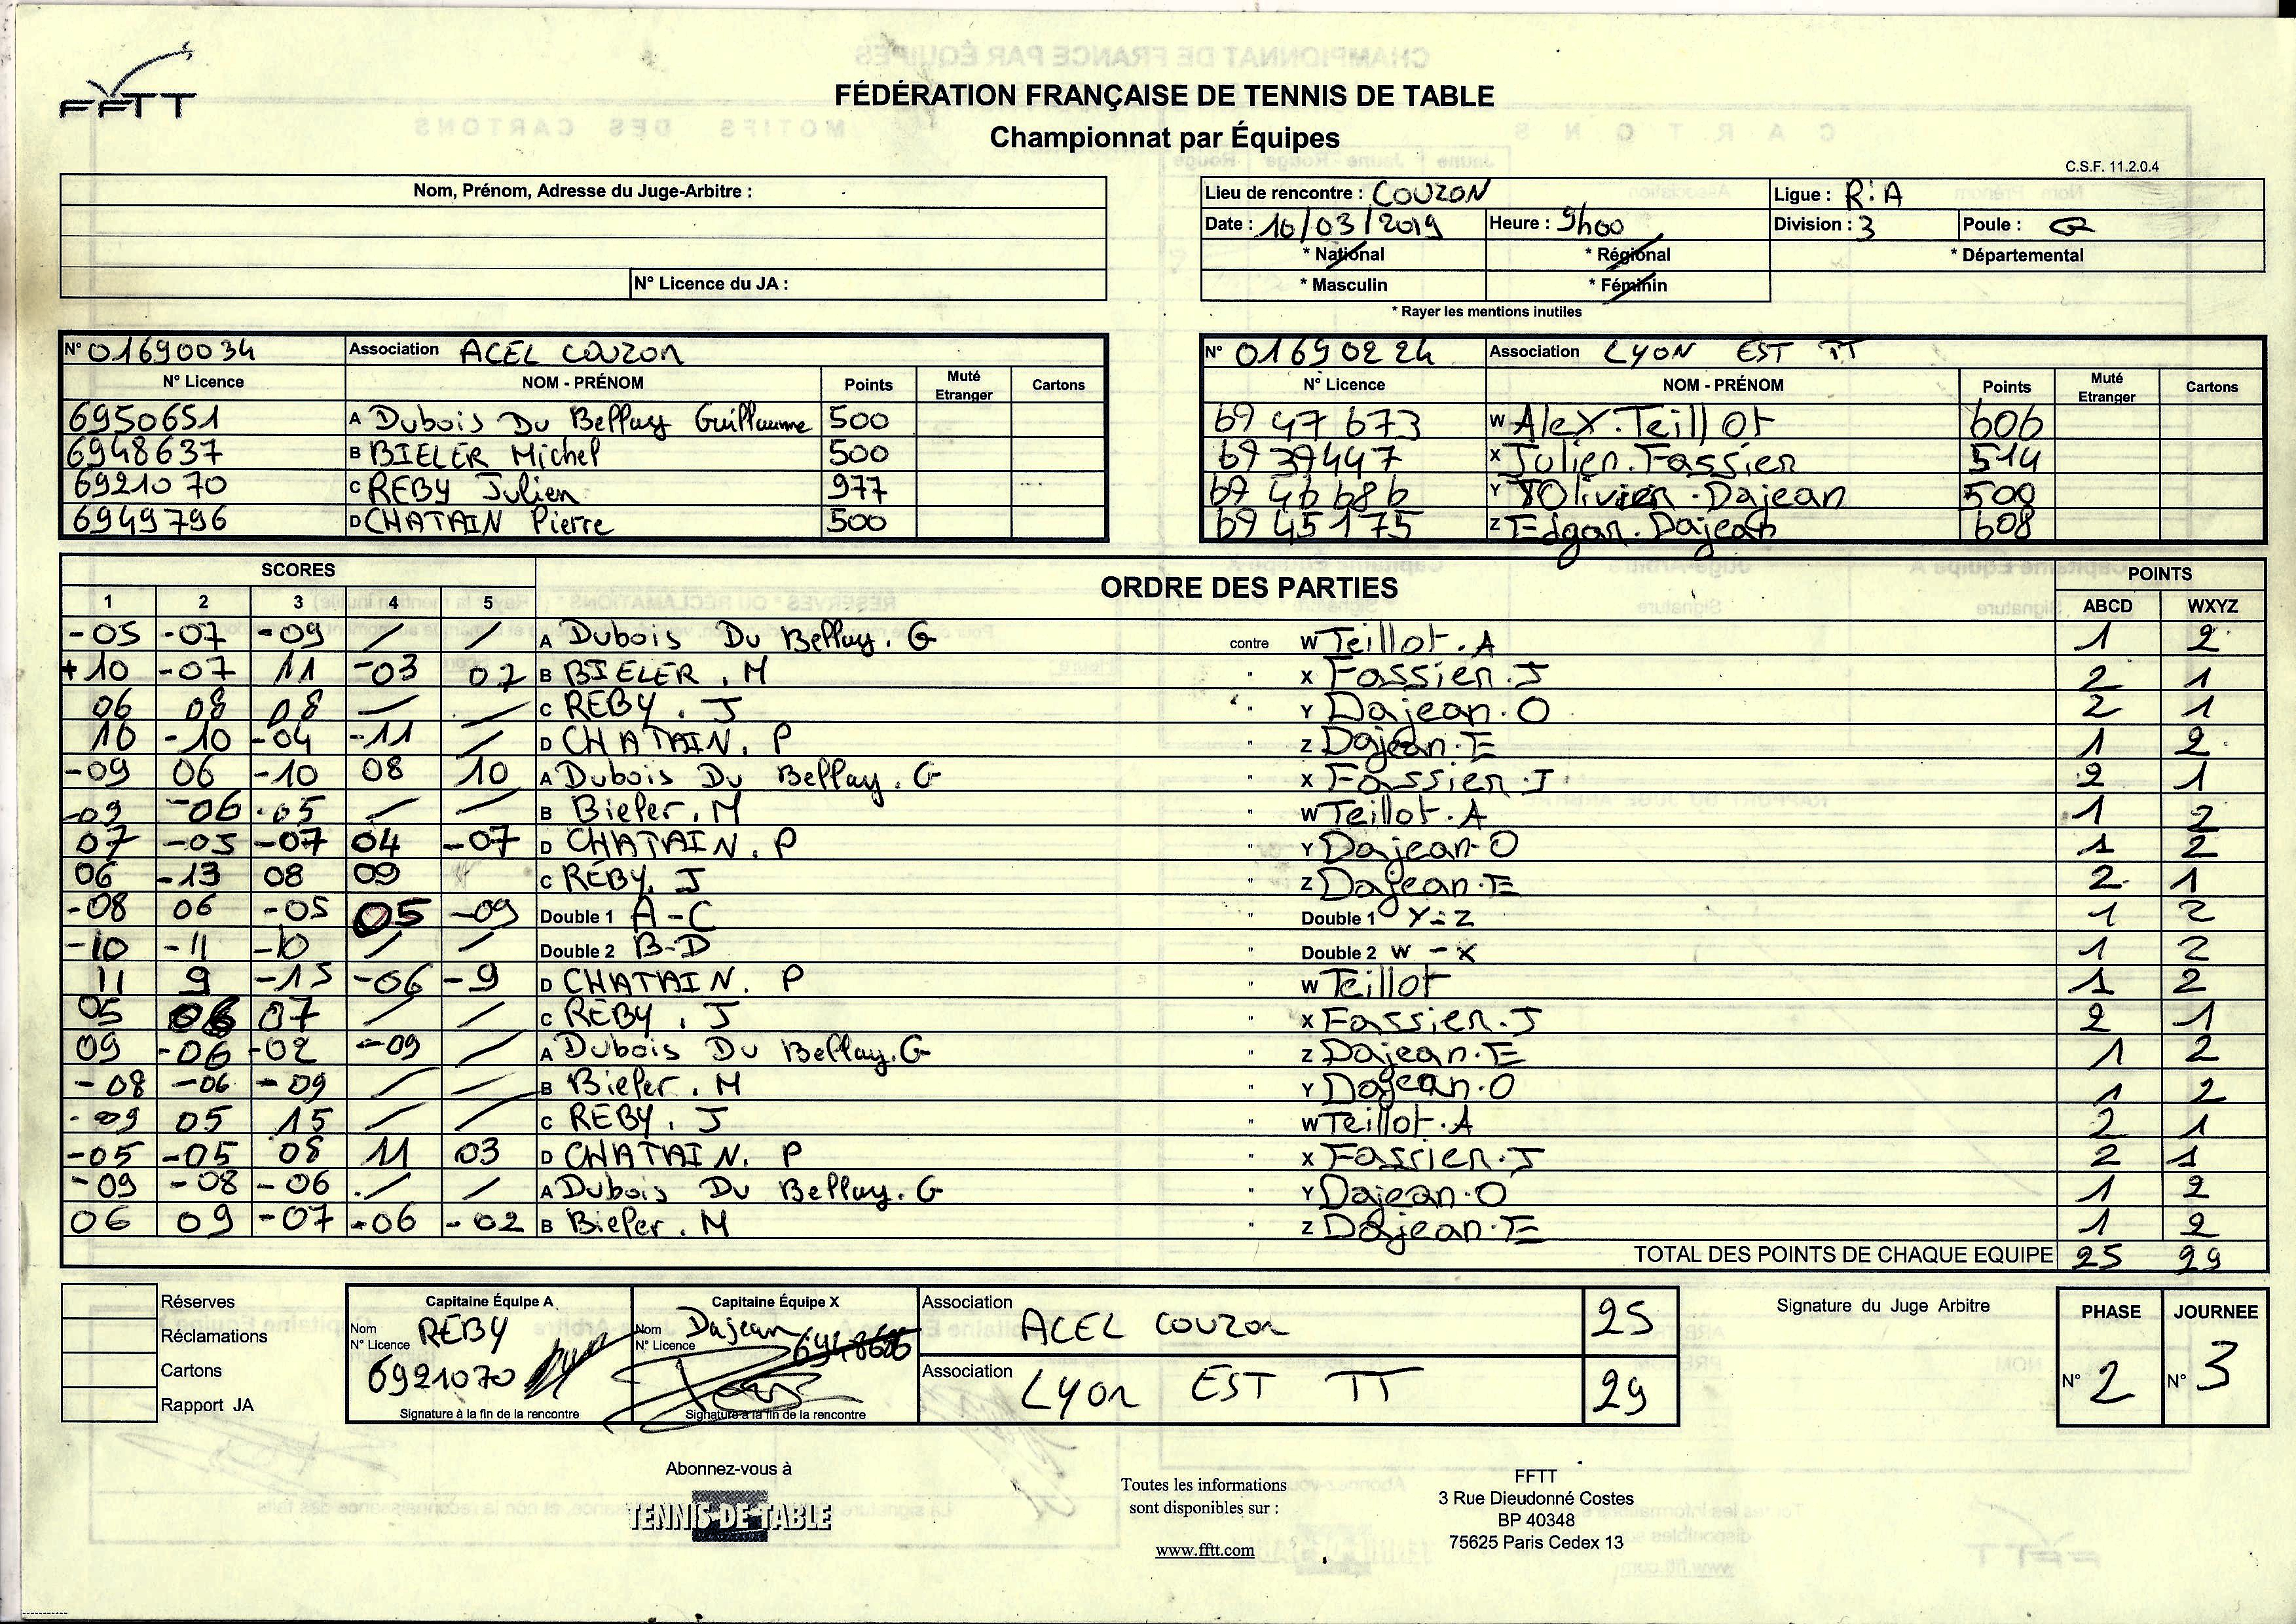 FFTT
FÉDÉRATION FRANÇAISE DE TENNIS DE TABLE
Championnat par Équipes
C.S.F. 11.2.0.4
Nom, Prénom, Adresse du Juge-Arbitre :
N° Licence du JA :
Lieu de rencontre : COUZON Ligue : R:A
Date : 10/03/2019 Heure : 9h00 Division : 3 Poule : G
* National * Régional * Départemental
* Masculin * Féminin
* Rayer les mentions inutiles
N° 01690034 Association ACEL COUZON
N° Licence NOM - PRÉNOM Points Muté Etranger Cartons
6950651 A Dubois Du Bellay Guillaume 500
6948637 B BIELER Michel 500
6921070 C REBY Julien 977
6949796 D CHATAIN Pierre 500
N° 01690224 Association LYON EST TT
N° Licence NOM - PRÉNOM Points Muté Etranger Cartons
69 47 673 W Alex.Teillot 606
69 39447 X Julien.Fassier 514
69 46 686 Y Olivier.Dajean 500
69 45 175 Z Edgar.Dajean 608
SCORES ORDRE DES PARTIES POINTS
1 2 3 4 5 ABCD WXYZ
-05 -07 -09 / / A Dubois Du Bellay.G contre W Teillot.A 1 2
+10 -07 11 -03 07 B BIELER.M " X Fassier.J 2 1
06 08 08 / / C REBY.J " Y Dajean.O 2 1
10 -10 -04 -11 / D CHATAIN.P " Z Dajean.E 1 2
-09 06 -10 08 10 A Dubois Du Bellay.G " X Fassier.J 2 1
-09 -06 -05 / / B Bieler.M " W Teillot.A 1 2
07 -05 -07 04 -07 D CHATAIN.P " Y Dajean-O 1 2
06 -13 08 09 C REBY.J " Z Dajean.E 2 1
-08 06 -05 05 -09 Double 1 A-C " Double 1 Y-Z 1 2
-10 -11 -10 / / Double 2 B-D " Double 2 W-X 1 2
11 9 -15 -06 -9 D CHATAIN.P " W Teillot 1 2
05 06 07 / / C REBY.J " X Fassier.J 2 1
09 -06 -02 -09 / A Dubois Du Bellay.G " Z Dajean.E 1 2
-08 -06 -09 / / B Bieler.M " Y Dajean.O 1 2
-09 05 15 / / C REBY.J " W Teillot.A 2 1
-05 -05 08 11 03 D CHATAIN.P " X Fassier.J 2 1
-09 -08 -06 / / A Dubois Du Bellay.G " Y Dajean.O 1 2
06 09 -07 -06 -02 B Bieler.M " Z Dajean.E 1 2
TOTAL DES POINTS DE CHAQUE EQUIPE 25 29
Réserves
Réclamations
Cartons
Rapport JA
Capitaine Équipe A
Nom REBY
N° Licence 6921070
Signature à la fin de la rencontre
Capitaine Équipe X
Nom Dajean
N° Licence
Signature à la fin de la rencontre
Association ACEL COUZON 25
Association LYON EST TT 29
Signature du Juge Arbitre
PHASE N° 2
JOURNEE N° 3
Abonnez-vous à
TENNIS DE TABLE
Toutes les informations
sont disponibles sur :
www.fftt.com
FFTT
3 Rue Dieudonné Costes
BP 40348
75625 Paris Cedex 13